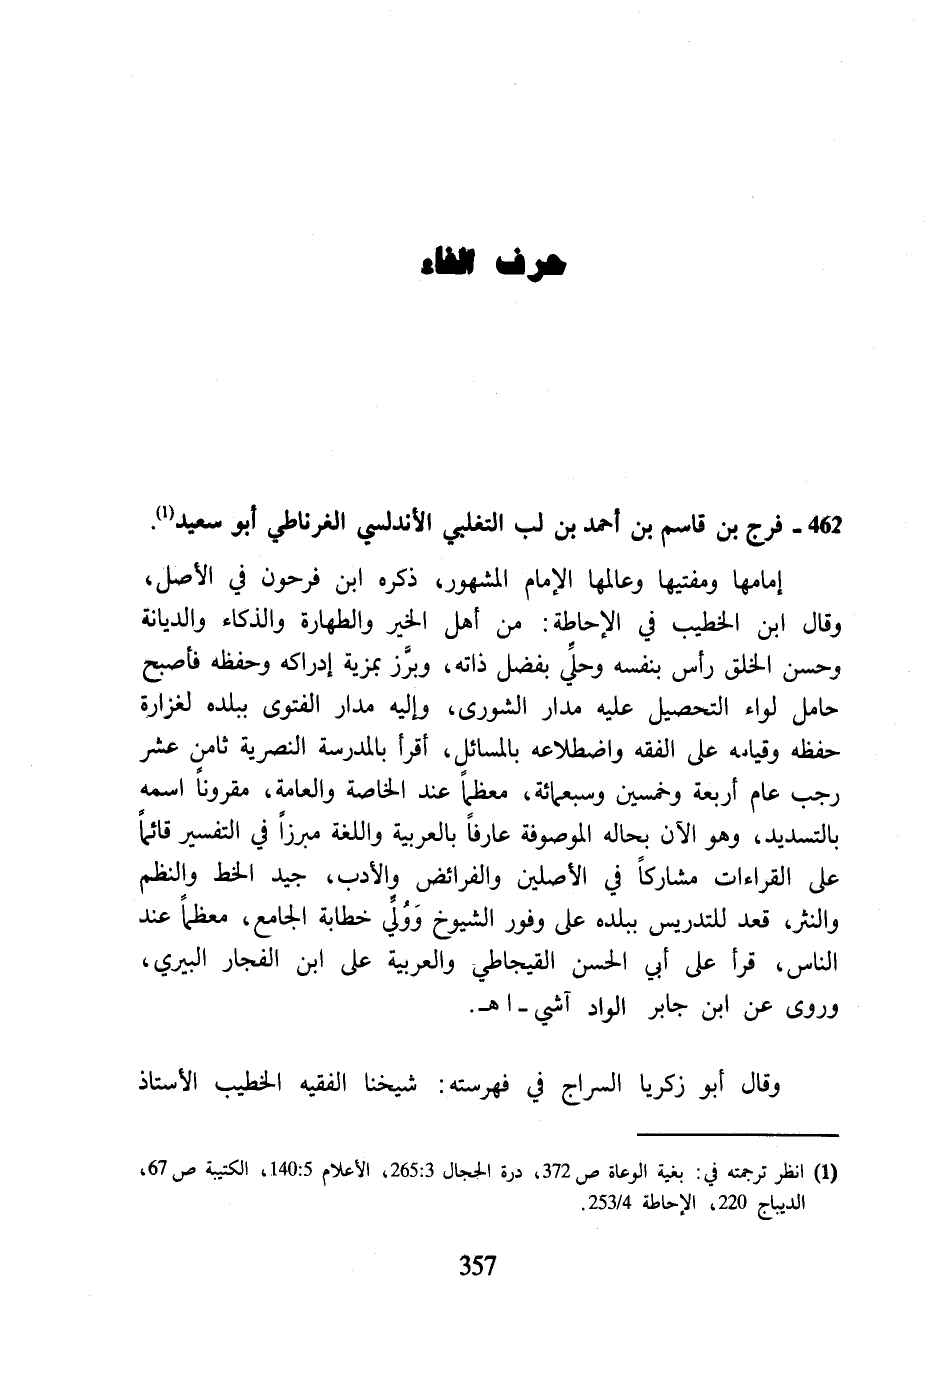 حرف الفاء
462 ـ فرج بن قاسم بن أحمد بن لب التغلبي الأندلسي الغرناطي أبو سعيد(1).
إمامها ومفتيها وعالمها الإمام المشهور، ذكره ابن فرحون في الأصل،
وقال ابن الخطيب في الإحاطة: من أهل الخير والطهارة والذكاء والديانة
وحسن الخلق رأس بنفسه وحلِّي بفضل ذاته، وبرَّز بمزية إدراكه وحفظه فأصبح
حامل لواء التحصيل عليه مدار الشورى، وإليه مدار الفتوى ببلده لغزارة
حفظه وقيامه على الفقه واضطلاعه بالمسائل، أقرأ بالمدرسة النصرية ثامن عشر
رجب عام أربعة وخمسين وسبعمائة، معظماً عند الخاصة والعامة، مقروناً اسمه
بالتسديد، وهو الآن بحاله الموصوفة عارفاً بالعربية واللغة مبرزاً في التفسير قائماً
على القراءات مشاركاً في الأصلين والفرائض والأدب، جيد الخط والنظم
والنثر، قعد للتدريس ببلده على وفور الشيوخ وَوُلِّي خطابة الجامع، معظماً عند
الناس، قرأ على أبي الحسن القيجاطي والعربية على ابن الفجار البيري،
وروى عن ابن جابر الواد آشي ـ ا هـ.
وقال أبو زكريا السراج في فهرسته: شيخنا الفقيه الخطيب الأستاذ
(1) انظر ترجمته في: بغية الوعاة ص 372، درة الحجال 265:3، الأعلام 140:5، الكتيبة ص 67،
الديباج 220، الإحاطة 253/4.
357